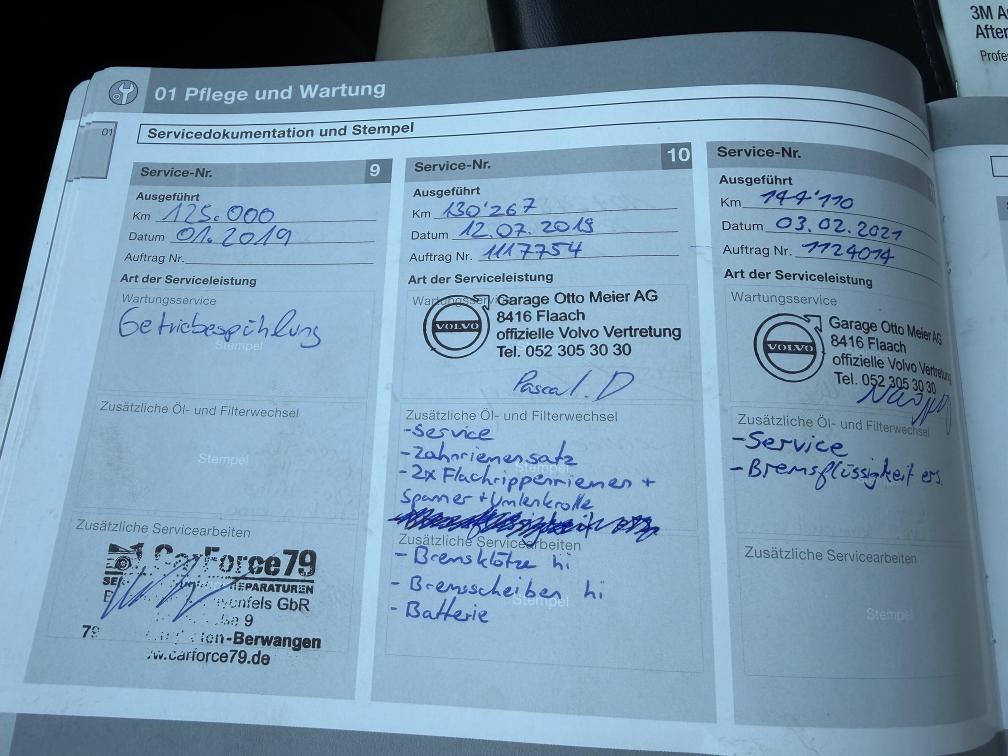 3M
After
Profe
01 Pflege und Wartung
01
Servicedokumentation und Stempel
Service-Nr. 9
Ausgeführt
Km 125.000
Datum 01.2019
Auftrag Nr.
Art der Serviceleistung
Wartungsservice
Getriebespühlung
Stempel
Zusätzliche Öl- und Filterwechsel
Stempel
Zusätzliche Servicearbeiten
CarForce79
REPARATUREN
enfels GbR
9
79 en-Berwangen
w.carforce79.de
Service-Nr. 10
Ausgeführt
Km 130'267
Datum 12.07.2019
Auftrag Nr. 1117754
Art der Serviceleistung
Wartungsservice
VOLVO
Garage Otto Meier AG
8416 Flaach
offizielle Volvo Vertretung
Tel. 052 305 30 30
Pascal. D
Zusätzliche Öl- und Filterwechsel
-Service
-Zahnriemensatz
Stempel
-2x Flachrippenriemen +
Spanner + Umlenkrolle
Zusätzliche Servicearbeiten
- Bremsklötze hi
- Bremsscheiben hi
Stempel
- Batterie
Service-Nr.
Ausgeführt
Km 144'110
Datum 03.02.2021
Auftrag Nr. 1124014
Art der Serviceleistung
Wartungsservice
VOLVO
Garage Otto Meier AG
8416 Flaach
offizielle Volvo Vertretung
Tel. 052 305 30 30
Zusätzliche Öl- und Filterwechsel
-Service
-Bremsflüssigkeit ers.
Zusätzliche Servicearbeiten
Stempel